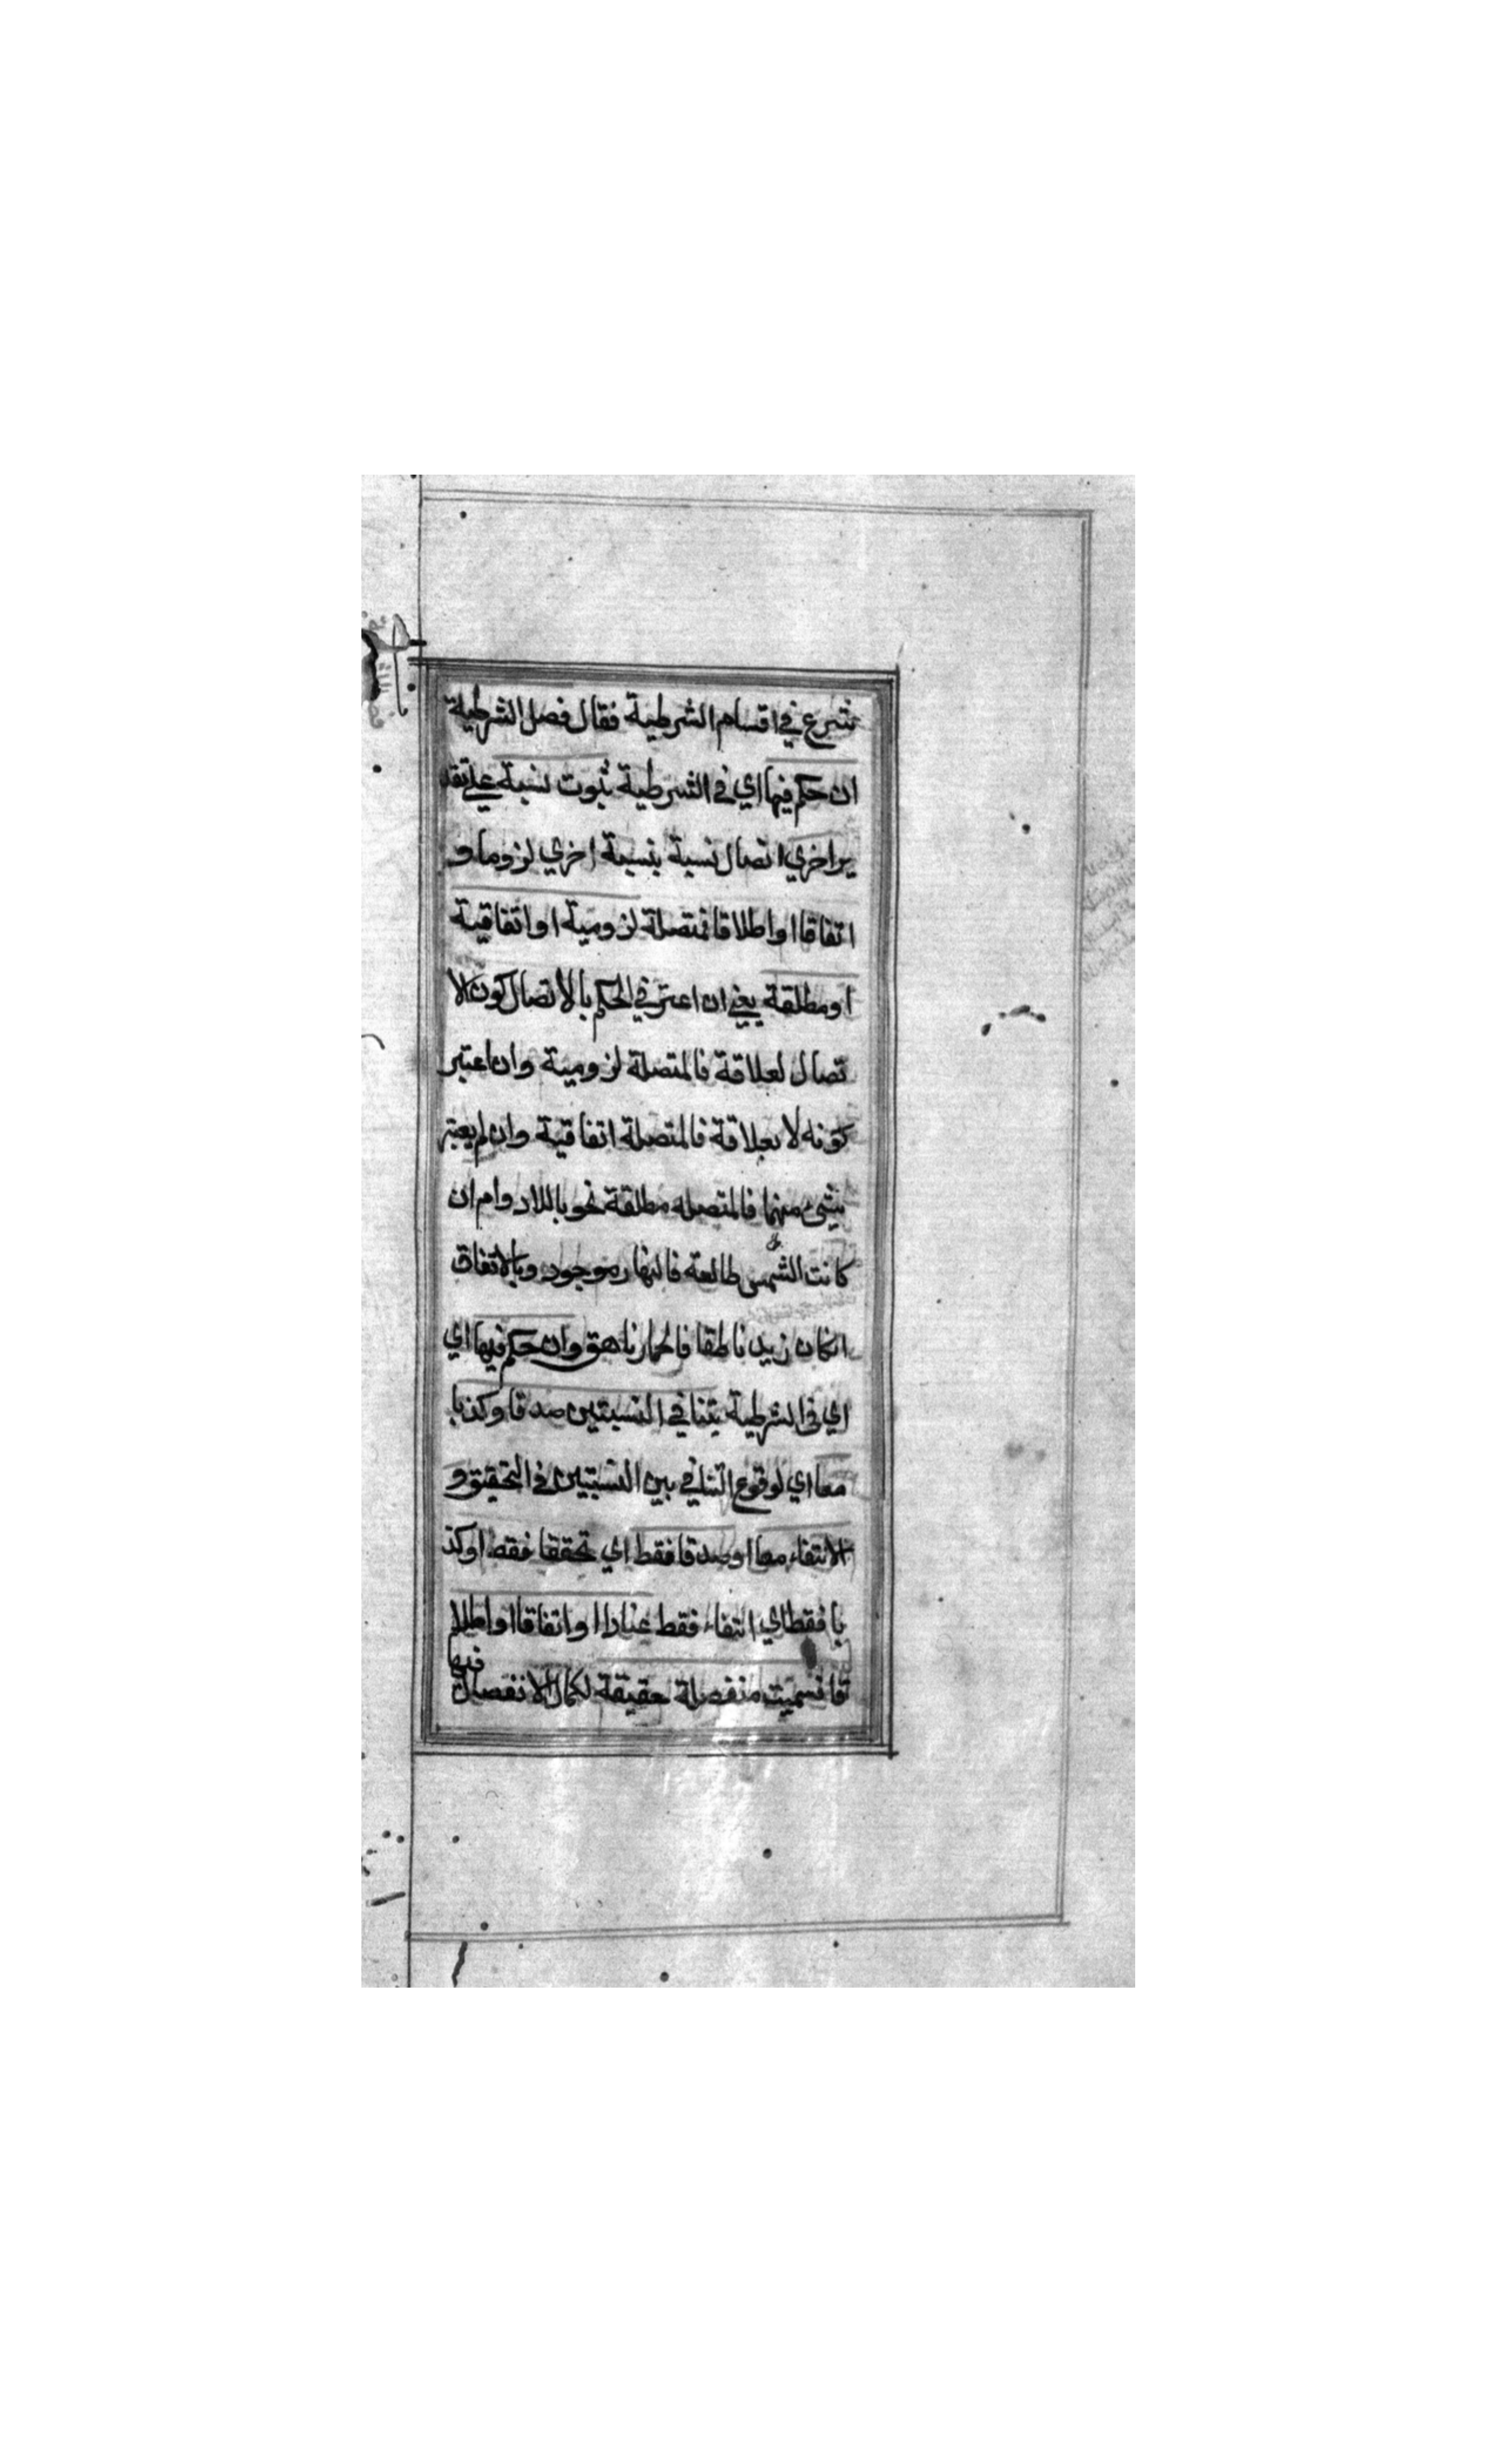 نشرع في اقسام الشرطية فقال فصل الشرطية
ان حكم فيها اي في الشرطية ثبوت نسبة علي تقد
ير اخري اتصال نسبة بنسبة اخري لزوما و
اتفاقا او اطلاقا فمتصلة لزومية او اتفاقية
او مطلقة يعني ان اعتبر في الحكم بالاتصال كون الا
تصال لعلاقة فالمتصلة لزومية وان اعتبر
كونه لا بعلاقة فالمتصلة اتفاقية وان لم يعتبر
شيء منهما فالمتصله مطلقة نحو باللادوام ان
كانت الشمس طالعة فالنهار موجود وبالاتفاق
انكان زيد ناطقا فالحمار ناهق وان حكم فيها اي
اي في الشرطية بتنافي النسبتين صدقا وكذبا
معا اي لوقوع التنافي بين النسبتين في التحقيق و
الانتفاء معا او صدقا فقط اي تحققا فقط او كذ
با فقط اي انتفاء فقط عنادا او اتفاقا او اطلا
فيها
قا فسميت منفصلة حقيقة لكمال الانفصال